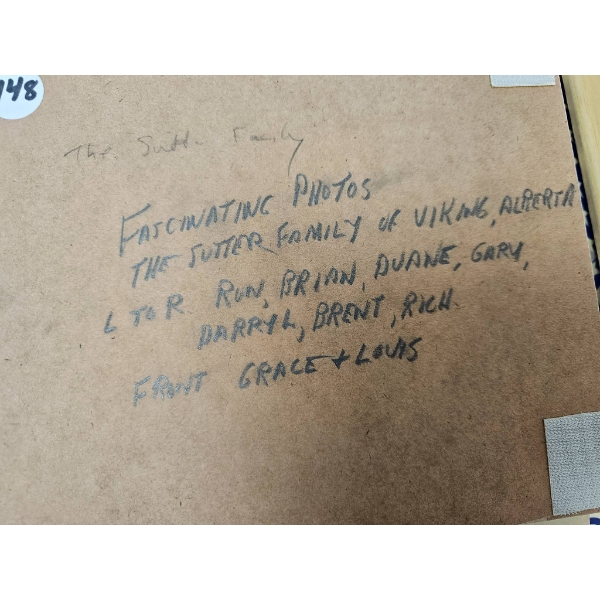 148
The Sutter Family
FASCINATING PHOTOS
THE SUTTER FAMILY OF VIKING, ALBERTA
L TO R. RON, BRIAN, DUANE, GARY,
DARRYL, BRENT, RICH.
FRONT GRACE + LOUIS